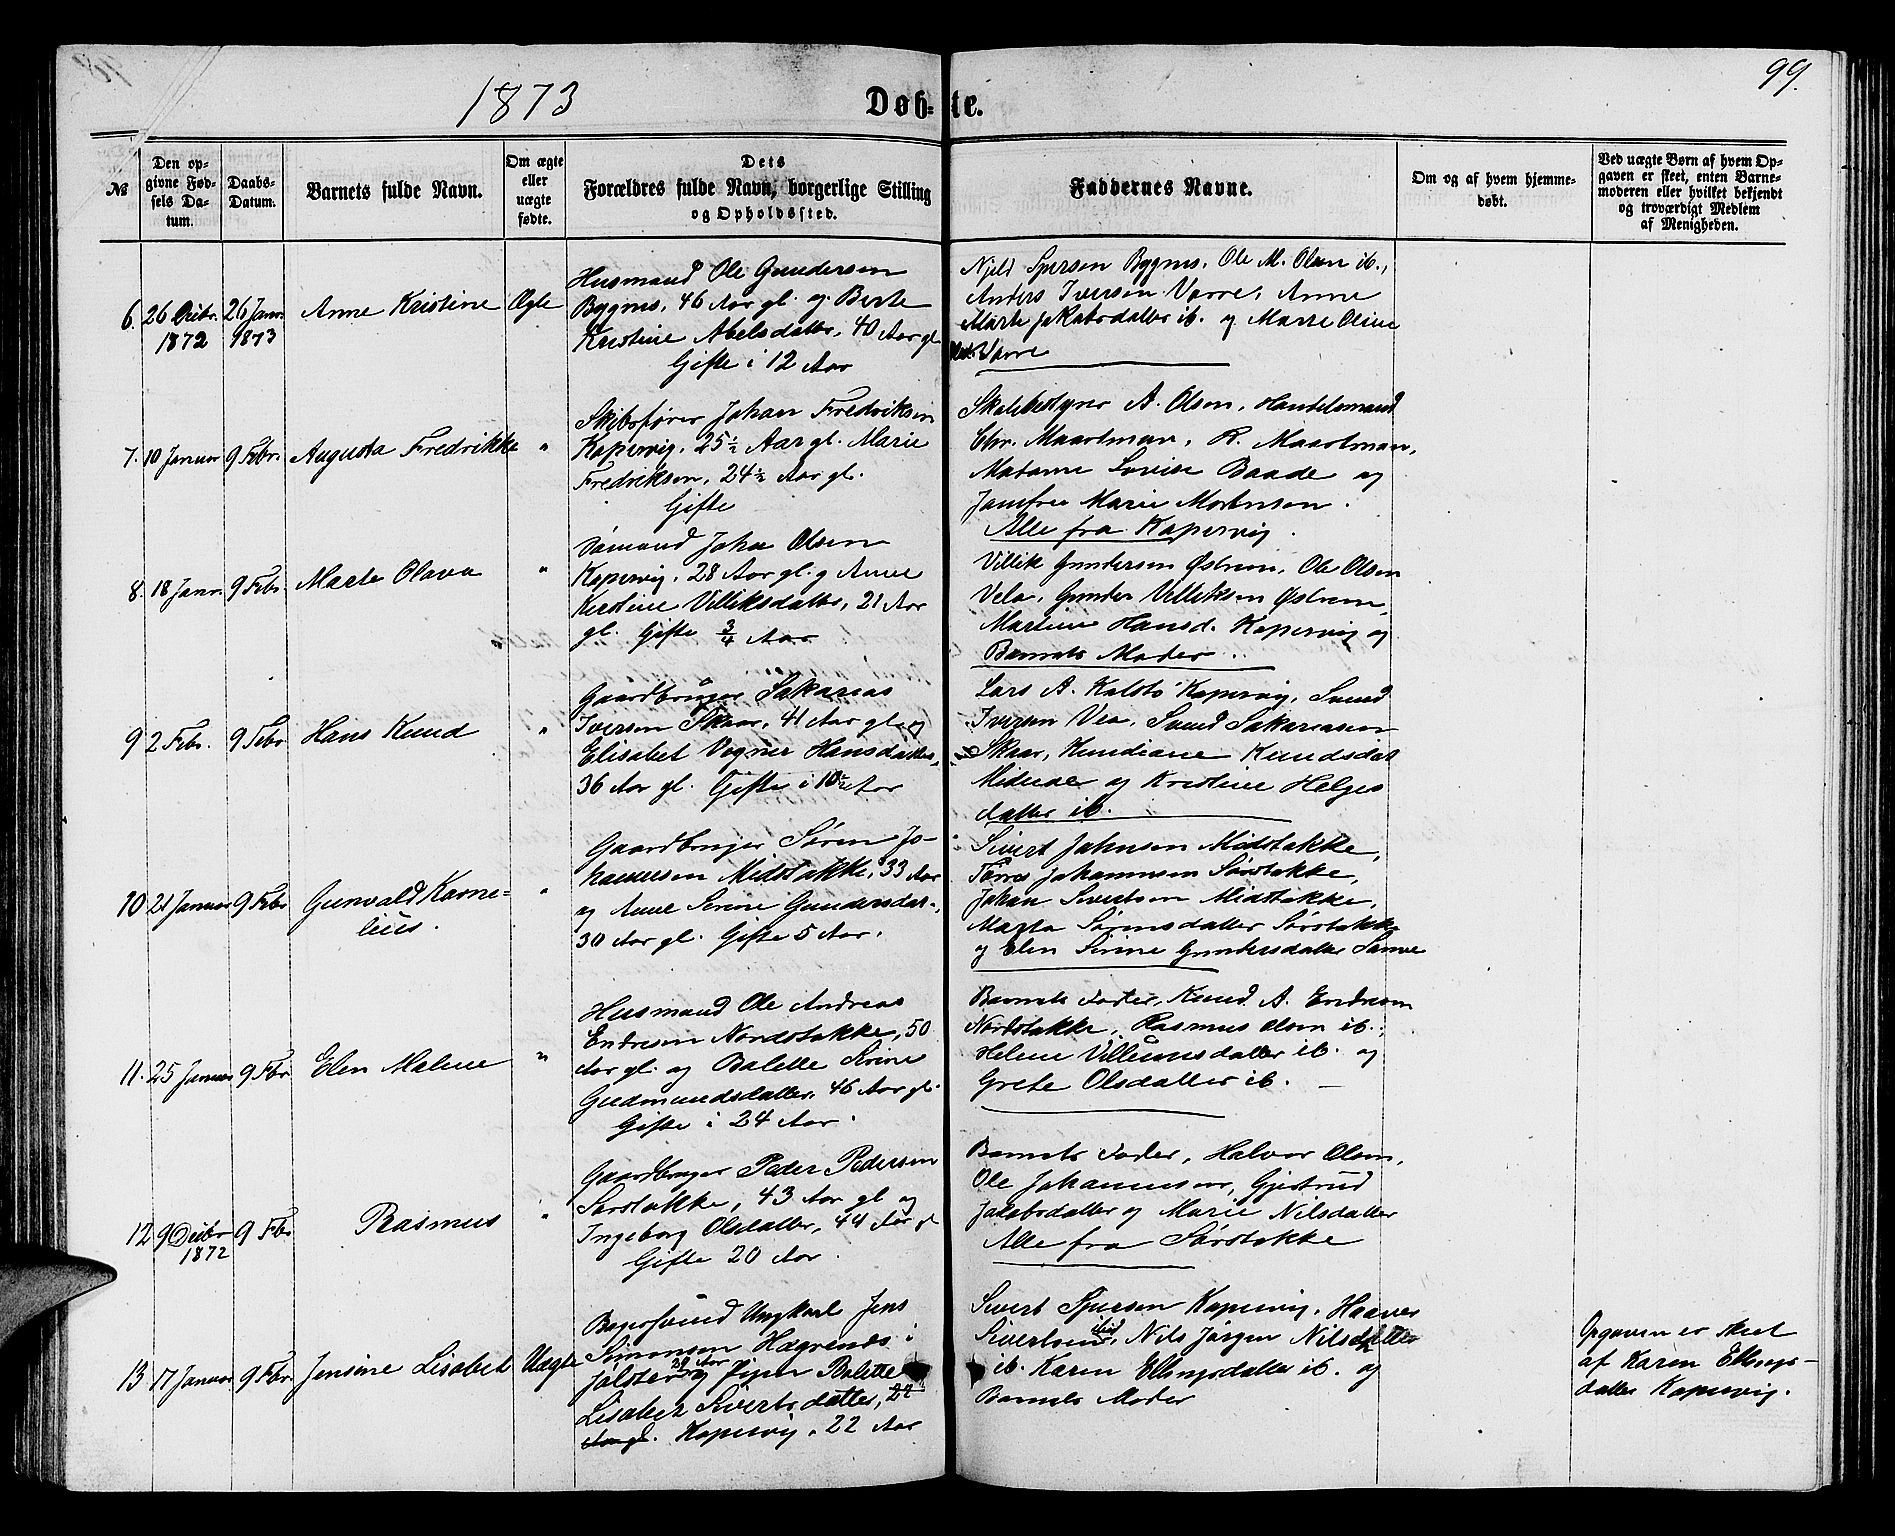 1873
Døb-te.
99.
№
Den op-
givne Fød-
sels Da-
tum.
Daabs-
Datum.
Barnets fulde Navn.
Om ægte
eller
uægte
fødte.
Dets
Forældres fulde Navn, borgerlige Stilling
og Opholdssted.
Faddernes Navne.
Om og af hvem hjemme-
døbt.
Ved uægte Børn af hvem Op-
gaven er skeet, enten Barne-
moderen eller hvilket bekjendt
og troværdigt Medlem
af Menigheden.
6. 26 Decbr. 1872
26 Janr. 1873
Anne Kristine
Ægte
Husmand Ole Gundersen
Bygnes, 46 Aar gl. og Berte
Kristine Abelsdatter, 40 Aar gl.
Gifte i 12 Aar
Njeld Sjursen Bygnes, Ole M. Olsen ib.,
Anders Iversen Vorre, Anne
Marte Jakobsdatter ib. og Marre Oline
Vorre
7. 10 Januar
9 Febr.
Augusta Fredrikke
"
Skibsfører Johan Fredriksen
Kopervig, 25½ Aar gl. Marie
Fredriksen, 24½ Aar gl.
Gifte
Skolebestyrer A. Olsen, Handelsmand
Chr. Maartman, R. Maartman,
Madame Lovise Baade og
Jomfru Marie Mortensen.
Alle fra Kopervig.
8. 18 Janr.
9 Febr.
Marte Olava
"
Sømand John Olsen
Kopervig, 28 Aar gl. og Anne
Kirstine Villiksdatter, 21 Aar
gl. Gifte ¾ Aar
Villik Gundersen Østrem, Ole Olsen
Vela, Gunder Villiksen Østrem,
Martine Hansd. Kopervig og
Barnets Moder.
9 2 Febr.
9 Febr
Hans Knud
"
Gaardbruger Sakarias
Iversen Skaar, 41 Aar gl. og
Elisabet Vogner Hansdatter,
36 Aar gl. Gifte i 10½ Aar
Lars A. Kolstø Kopervig, Svend
Iversen Vea, Svend Sakariasen
Skaar, Knudiane Knudsdat
og Kristine Helges
datter ib.
10 21 Januar
9 Febr
Gunvald Korne-
lius.
"
Gaardbruger Søren Jo-
hannesen Midstokke, 33 Aar
og Anne Serine Gundersdat.,
30 Aar gl. Gifte 5 Aar.
Sivert Johnsen Midstokke,
Tørres Johannesen Sørstokke,
Johan Sivertsen Midstokke,
Marta Sørensdatter Sørstokke
og Elen Serine Gundersdatter Sanve
11. 25 Januar
9 Febr
Elen Malene
"
Husmand Ole Andreas
Endresen Nordstokke, 50
Aar gl. og Bolette Serine
Gudmundsdatter, 46 Aar gl.
Gifte i 24 Aar.
Barnets Fader, Knud A. Endresen
Nordstokke, Rasmus Olsen ib.,
Helene Villumsdatter ib. og
Grete Olsdatter ib.
12 9 Decbr 1872
9 Febr
Rasmus
"
Gaardbruger Peder Pedersen
Sørstokke, 43 Aar gl og
Ingeborg Olsdatter, 44 Aar gl
Gifte 20 Aar.
Barnets Fader, Halvor Olsen,
Ole Johannesen, Gjertrud
Jakobsdatter og Marie Nilsdatter
Alle fra Sørstokke
13 17 Januar
9 Febr
Jensine Lisabet
Uægte
Bagersvend Ungkarl Jens
Simonsen Hægrenes i
Jølster 29 Aar og Pigen Bolette
Lisabet Sivertsdatter, 22
Aar gl. Kopervig, 22 Aar
Sivert Sjursen Kopervig, Haaver
Sivertsen ibid, Nils Jørgen Nilsdatter
ib. Karen Ellingsdatter ib. og
Barnets Moder
Opgaven er skeet
af Karen Ellings-
datter Kopervig.